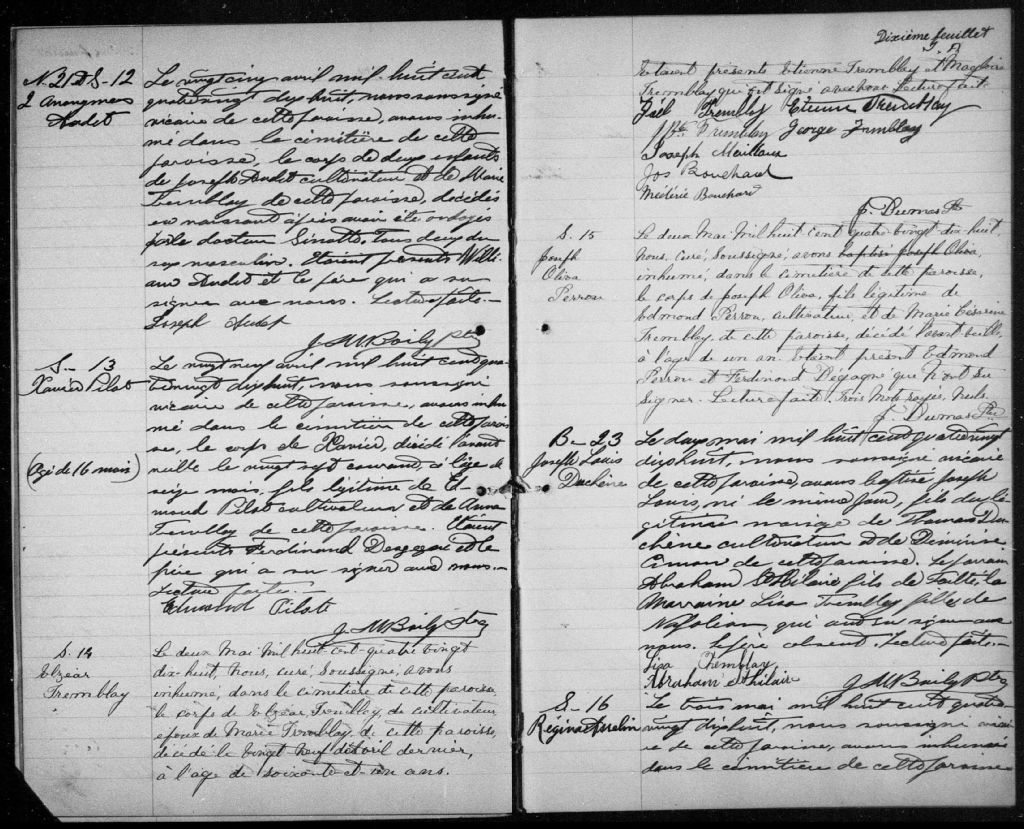 N. 21 & S-12
2 Anonymes
Audet
Le vingt cinq avril mil huit cent
quatrevingt dix huit, nous soussigné
vicaire de cette paroisse, avons inhu-
mé dans le cimitière de cette
paroisse, le corps de deux enfants
de Joseph Audet cultivateur et de Marie
Tremblay de cette paroisse, décédés
en naissant après avoir été ondoyés
par le docteur Tous deux du
sexe masculin. Etaient présents Willi-
am Audet et le père qui a su
signer avec nous. Lecture faite.-
Joseph Audet
J M Baily Ptre
S- 13
Xavier Pilot
(Agé de 16 mois)
Le vingt neuf avril mil huit cent qua-
trevingt dix huit, nous soussigné
vicaire de cette paroisse, avons inhu-
mé dans le cimitière de cette parois-
se, le corps de Xavier, décédé l'avant
veille le vingt sept courant, à l'âge de
seize mois, fils légitime de Ed-
mond Pilot cultivateur et de Anna
Tremblay de cette paroisse. Etaient
présents Ferdinand et le
père qui a su signer avec nous.-
Lecture faite.-
Edmond Pilote
J M Baily Ptre
S. 14
Elzéar
Tremblay
Le deux Mai Mil huit cent quatre vingt
dix-huit, Nous, curé, soussigné, avons
inhumé, dans le cimetière de cette paroisse,
le corps de Elzéar Tremblay, cultivateur
époux de Marie Tremblay, de cette paroisse,
décédé le vingt neuf d'avril dernier,
à l'age de soixante-et-un ans.
Dixième feuillet
Etaient présents Etienne Tremblay et Magloire
Tremblay qui ont signé avec nous. Lecture faite.
Joël Tremblay Etienne Tremblay
Tremblay George Tremblay
Joseph Mailloux
Jos Bouchard
Médérie Bouchard
J. Dumas Ptre
S. 15
Joseph
Oliva
Perron
Le deux Mai Mil huit cent quatre vingt dix-huit,
Nous, curé, soussigné, avons baptisé Joseph Oliva,
inhumé, dans le cimetière de cette paroisse,
le corps de Joseph Oliva, fils légitime de
Edmond Perron, cultivateur, et de Marie Césarine
Tremblay, de cette paroisse, décédé l'avant-veille,
à l'age de un an. Etaient présent Edmond
Perron et Ferdinand Dégagné qui n'ont su
signer. Lecture faite. Trois mots rayés, nuls.
J. Dumas Ptre
B- 23
Joseph Louis
Duchêne
Le deux mai mil huit cent quatrevingt
dix huit, nous soussigné vicaire
de cette paroisse, avons baptisé Joseph
Louis, né le même jour, fils du lé-
gitime mariage de Thomas Du-
chêne cultivateur et de Démérise
Simon de cette paroisse. Le parrain
Abraham St Hilaire fils de la
Marraine Lisa Tremblay fille de
Napoléon, qui ont su signer avec
nous. Le père absent. Lecture faite.-
Lisa Tremblay
Abraham St hilaire
J M Baily Ptre
S- 16
Régina Asselin
Le trois mai mil huit cent quatre-
vingt dix huit, nous soussigné vicai-
re de cette paroisse, avons inhumé
dans le cimitière de cette paroisse